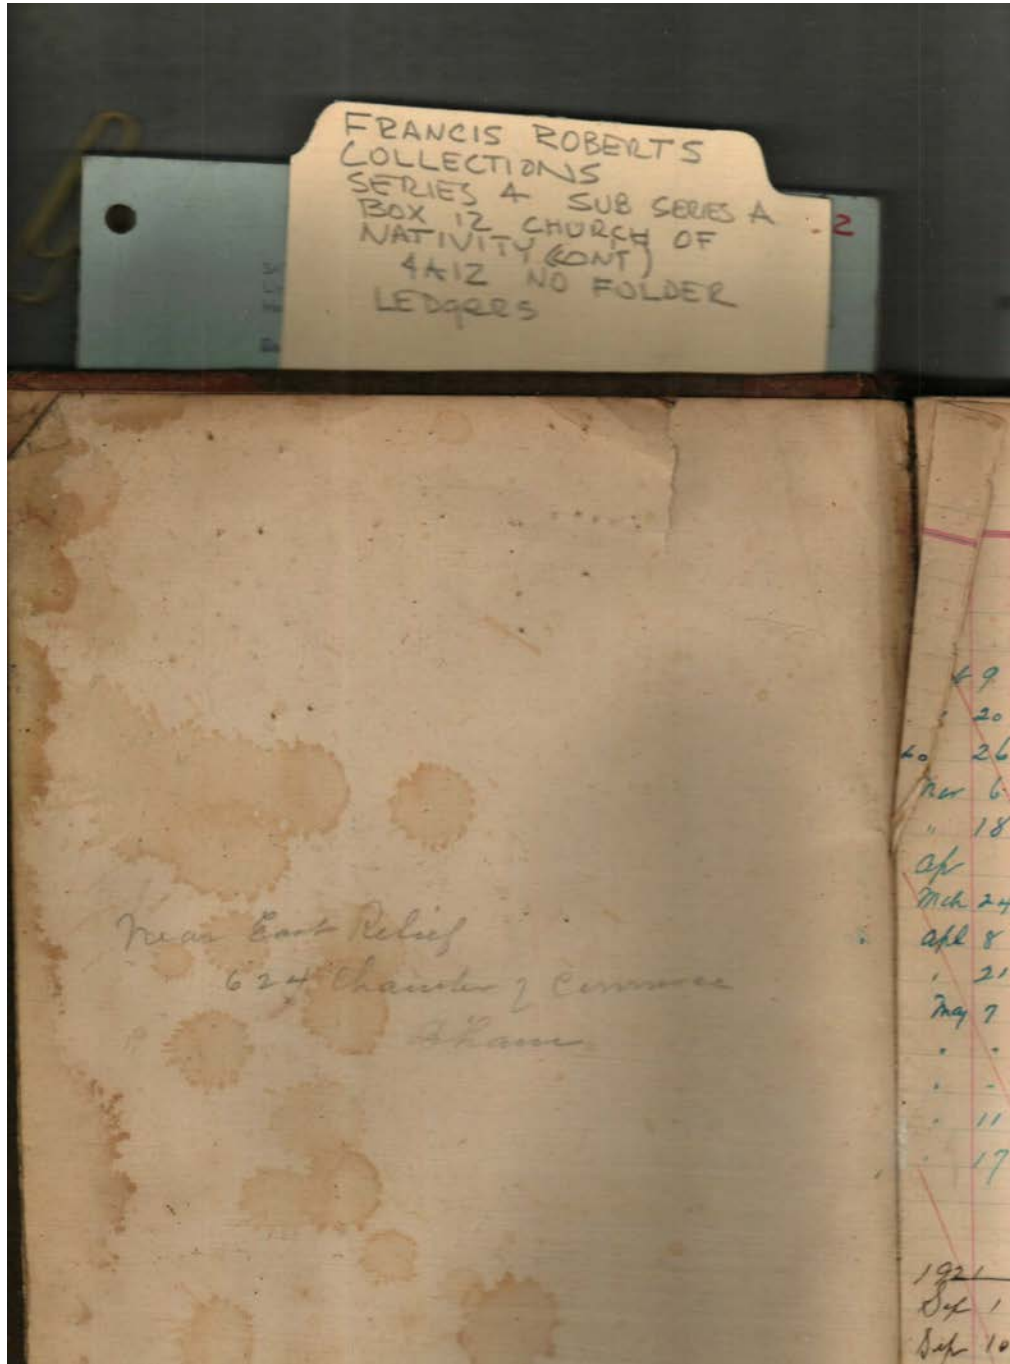 FRANCIS ROBERTS
COLLECTIONS
SERIES 4 SUB SERIES A
BOX 12 CHURCH OF
NATIVITY (CONT)
4A12 NO FOLDER
LEDGERS
2
Near East Relief
624 Chamber of Commerce
B'ham
9
" 20
26
Mar 6
" 18
Ap
Mch 24
Apl 8
" 21
May 7
" "
" "
" 11
" 17
1921
Sep 1
Sep 10